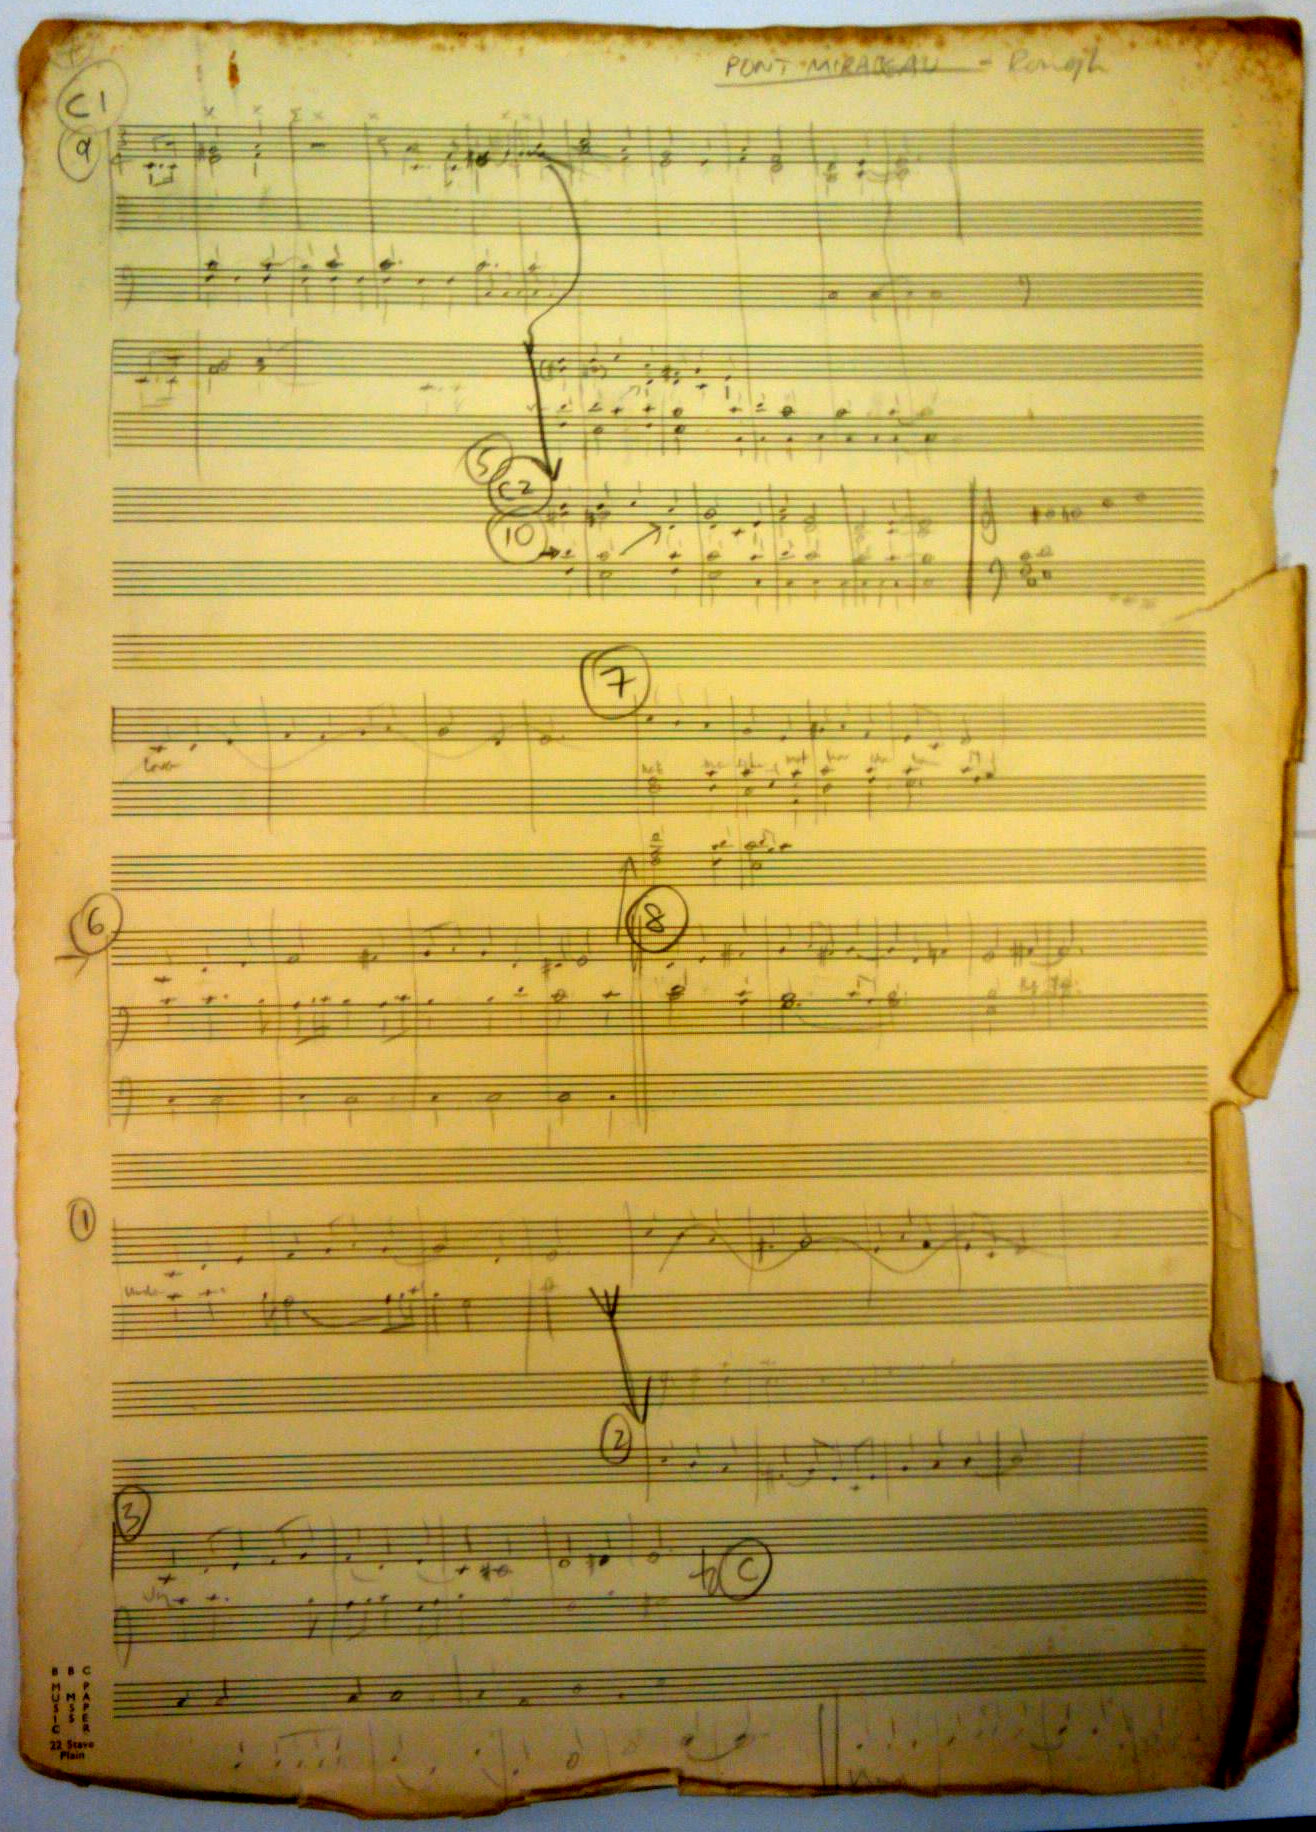 PONT MIRABEAU - Rough
C1
9
5
C2
10
7
Love
not
6
8
1
Under
2
3
C
Joy
B B C
MUSIC MSS PAPER
22 Stave
Plain